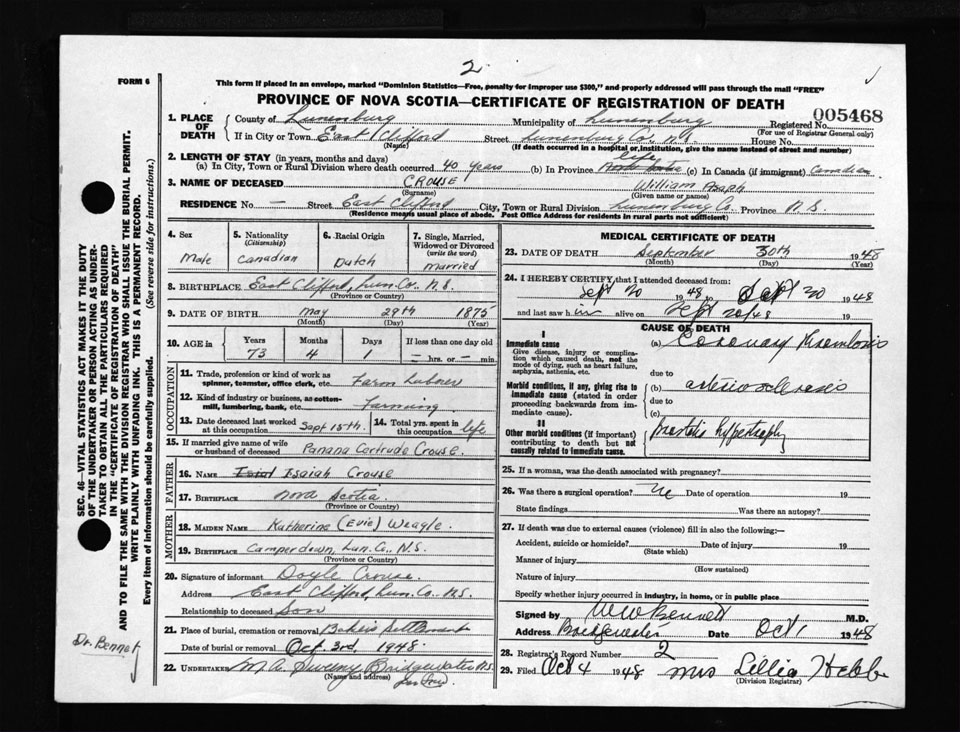 2
FORM 6
This form if placed in an envelope, marked "Dominion Statistics—Free, penalty for improper use $300," and properly addressed will pass through the mail "FREE"
PROVINCE OF NOVA SCOTIA—CERTIFICATE OF REGISTRATION OF DEATH
005468
1. PLACE OF DEATH County of Lunenburg Municipality of Lunenburg Registered No.
(For use of Registrar General only)
If in City or Town East Clifford Street Lunenburg Co., N.S. House No.
(Name) (If death occurred in a hospital or institution, give the name instead of street and number)
2. LENGTH OF STAY (in years, months and days) life
(a) In City, Town or Rural Division where death occurred 40 years (b) In Province Nova Scotia (c) In Canada (if immigrant) Canadian
3. NAME OF DECEASED CROUSE William
(Surname) (Given name or names)
RESIDENCE No. — Street East Clifford City, Town or Rural Division Lunenburg Co. Province N.S.
(Residence means usual place of abode. Post Office Address for residents in rural parts not sufficient)
4. Sex Male
5. Nationality (Citizenship) Canadian
6. Racial Origin Dutch
7. Single, Married, Widowed or Divorced (write the word) Married
8. BIRTHPLACE East Clifford, Lun. Co. N.S.
(Province or Country)
9. DATE OF BIRTH May 29th 1875
(Month) (Day) (Year)
10. AGE in Years Months Days If less than one day old
73 4 1 — hrs. or — min.
OCCUPATION
11. Trade, profession or kind of work as spinner, teamster, office clerk, etc. Farm Laborer
12. Kind of industry or business, as cotton-mill, lumbering, bank, etc. Farming
13. Date deceased last worked at this occupation Sept 15th. 14. Total yrs. spent in this occupation life
15. If married give name of wife or husband of deceased Panana Gertrude Crouse.
FATHER
16. NAME Isaiah Crouse
17. BIRTHPLACE Nova Scotia
(Province or Country)
MOTHER
18. MAIDEN NAME Katherine (Evie) Weagle.
19. BIRTHPLACE Camperdown, Lun. Co., N.S.
(Province or Country)
20. Signature of informant Doyle Crouse.
Address East Clifford, Lun. Co. N.S.
Relationship to deceased Son
21. Place of burial, cremation or removal Bakers Settlement
Date of burial or removal Oct. 3rd, 1948.
22. UNDERTAKER M.A. Sweeny Bridgewater N.S.
(Name and address)
MEDICAL CERTIFICATE OF DEATH
23. DATE OF DEATH September 30th 1948
(Month) (Day) (Year)
24. I HEREBY CERTIFY that I attended deceased from:
Sept 20 1948 to Sept 20 1948
and last saw h im alive on Sept 20/48 19
CAUSE OF DEATH
I
Immediate cause
Give disease, injury or complication which caused death, not the mode of dying, such as heart failure, asphyxia, asthenia, etc.
(a) Coronary Thrombosis
due to
Morbid conditions, if any, giving rise to immediate cause (stated in order proceeding backwards from immediate cause).
(b) arteriosclerosis
due to
(c)
II
Other morbid conditions (if important) contributing to death but not causally related to immediate cause.
Prostatic hypertrophy
25. If a woman, was the death associated with pregnancy?
26. Was there a surgical operation? Date of operation 19
State findings Was there an autopsy?
27. If death was due to external causes (violence) fill in also the following:—
Accident, suicide or homicide? Date of injury 19
(State which)
Manner of injury
(How sustained)
Nature of injury
Specify whether injury occurred in industry, in home, or in public place
Signed by W W Bennett M.D.
Address Bridgewater Date Oct 1 1948
28. Registrar's Record Number 2
29. Filed Oct 4 1948 Mrs Lillia Hebb
(Division Registrar)
SEC. 46—VITAL STATISTICS ACT MAKES IT THE DUTY OF THE UNDERTAKER OR PERSON ACTING AS UNDERTAKER TO OBTAIN ALL THE PARTICULARS REQUIRED IN THE "CERTIFICATE OF REGISTRATION OF DEATH" AND TO FILE THE SAME WITH THE DIVISION REGISTRAR WHO SHALL ISSUE THE BURIAL PERMIT.
WRITE PLAINLY WITH UNFADING INK. THIS IS A PERMANENT RECORD.
Every item of Information should be carefully supplied. (See reverse side for instructions.)
Dr. Bennet